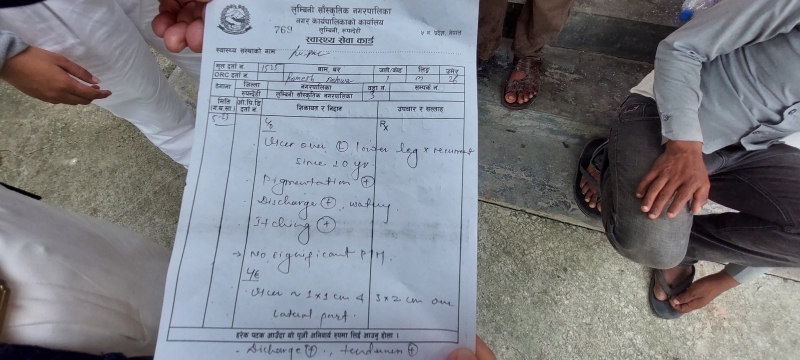 लुम्बिनी सांस्कृतिक नगरपालिका
नगर कार्यपालिकाको कार्यालय
लुम्बिनी, रुपन्देही
769
५ नं. प्रदेश, नेपाल
स्वास्थ्य सेवा कार्ड
स्वास्थ्य संस्थाको नाम
मुल दर्ता नं. 1525 नाम, थर जाती/कोड लिङ्ग उमेर
ORC दर्ता नं. M
ठेगाना जिल्ला नगरपालिका वडा नं. सम्पर्क नं.
रुपन्देही लुम्बिनी सांस्कृतिक नगरपालिका 5
मिति ओ.पि.डि. दर्ता नं. सिकायत र निदान उपचार र सल्लाह
5-23 C/o Rx
Ulcer over (L) lower leg x recurrent
since 10 yr.
Pigmentation (+)
Discharge (+), watery
Itching (+)
→ No significant P/H.
O/E
Ulcer ~ 1x1 cm & 3x2 cm over
lateral part.
हरेक पटक आउँदा यो पूर्जी अनिवार्य रुपमा लिई आउनु होला ।
- Discharge (+), tenderness (+)